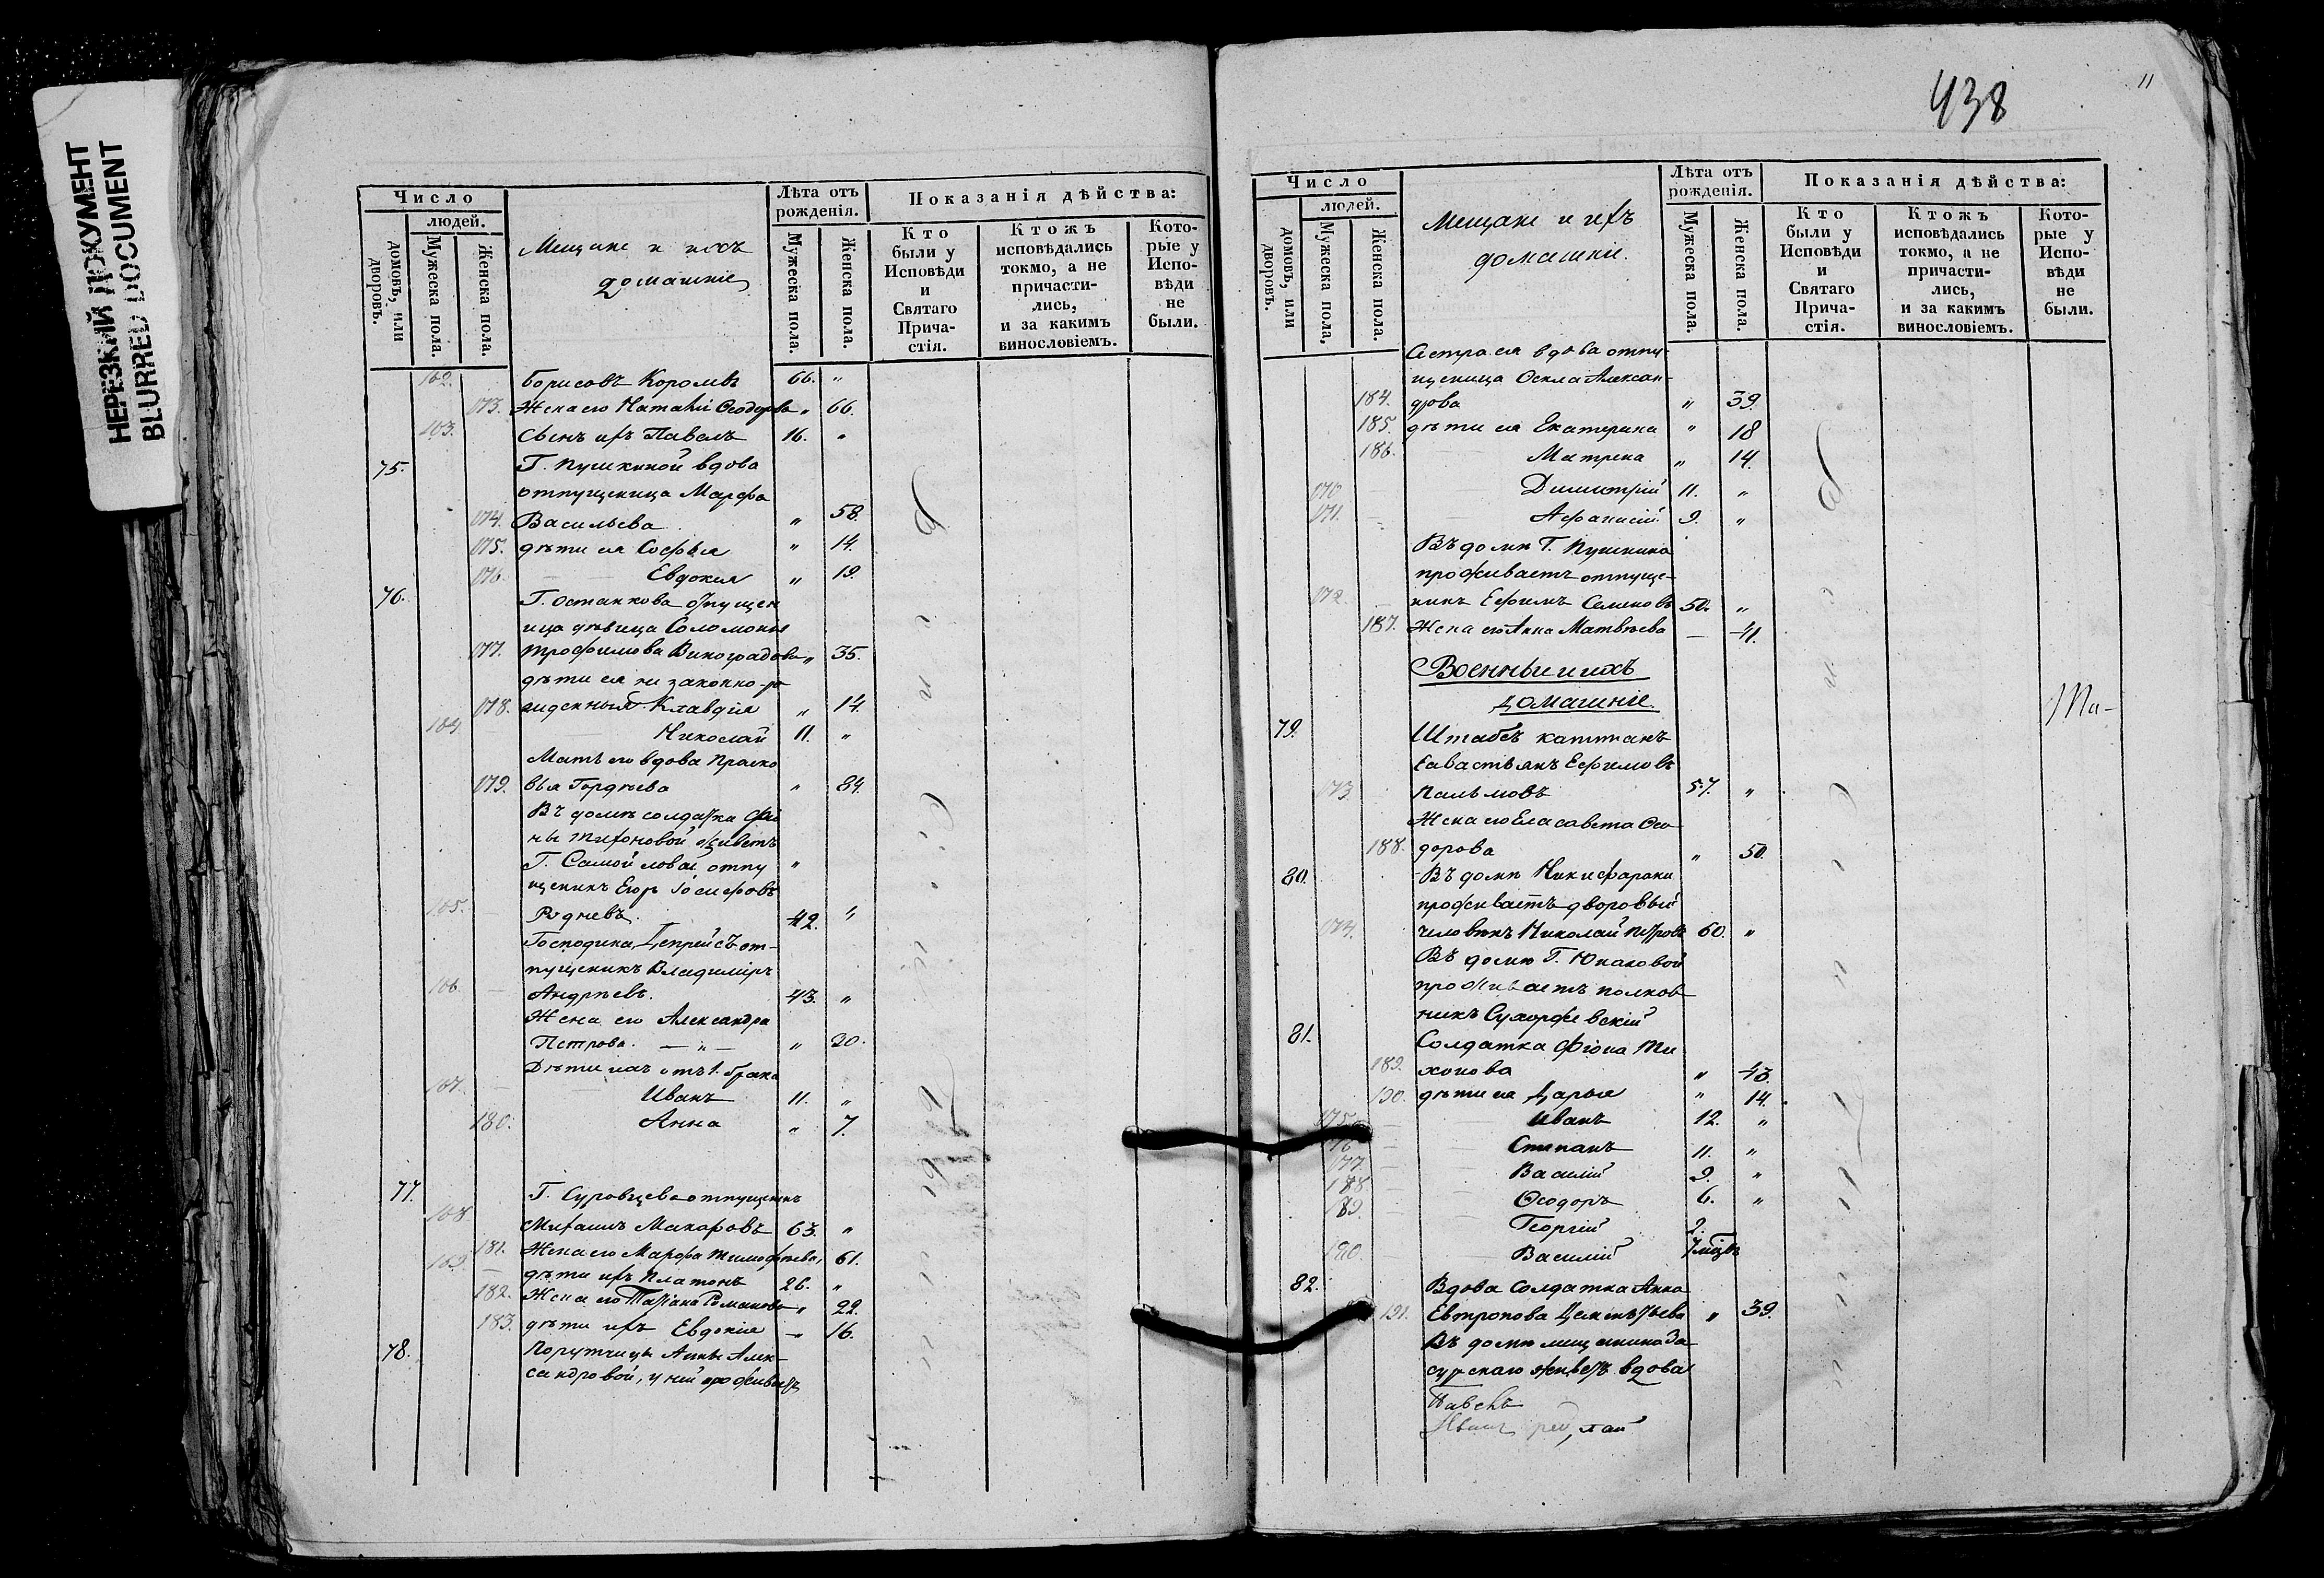 НЕРЕЗКИЙ ДОКУМЕНТ
BLURRED DOCUMENT
Число
людей.
домовъ, или дворовъ.
Мужеска пола.
Женска пола.
Мещане и ихъ
домашніе
Лѣта отъ рожденія.
Мужеска пола.
Женска пола.
Показанія дѣйства:
Кто были у Исповѣди и Святаго Прича-стія.
Ктожъ исповѣдались токмо, а не причасти-лись, и за какимъ винословіемъ.
Кото-рые у Испо-вѣди не были.
162. Борисовъ 66. „
173. Жена его Наталія Ѳеодорова „ 66.
163. Сынъ ихъ Павелъ 16. „
75. Г. Пушкиной вдова
отпущеница Марфа
174. Васильева „ 58.
175. дѣти ея Софья „ 14.
176. Евдокия „ 19.
76. Г. Останкова отпущен
ица дѣвица Соломонія
177. Трофимова Виноградова „ 35.
дѣти ея не законно-ро
178. жденныя Клавдія „ 14.
164 Николай 11. „
Мать его вдова Праско
179. вья Гордѣева „ 84.
Въ домѣ солдатка Фіо
ны Тихоновой живетъ
Г. Самойловой отпу „
щеникъ Егоръ Іосифовъ
165. Родневъ. 42. „
Господина отпущеникъ Владиміръ
166. Андреевъ. 43. „
Жена его Александра
Петрова. — „ — „ 20.
Дѣти ихъ отъ 1. брака
167. Иванъ 11. „
180. Анна „ 7.
77. Г. Суровцева отпущеникъ
168 Михаилъ Макаровъ 63. „
181. Жена его Марфа Тимофѣева „ 61.
169. дѣти ихъ Платонъ 26. „
182. Жена его Татіана Романова „ 22.
183. дѣти ихъ Евдокія „ 16.
78. Порутчицы Анны Алек-
сандровой, у ней проживаетъ
438
11
Число
людей.
домовъ, или дворовъ.
Мужеска пола,
Женска пола.
Мещане и ихъ
домашніе.
Лѣта отъ рожденія.
Мужеска пола.
Женска пола.
Показанія дѣйства:
Кто были у Исповѣди и Святаго Прича-стія.
Ктожъ исповѣдались токмо, а не причасти-лись, и за какимъ винословіемъ.
Кото-рые у Испо-вѣди не были.
Сестра ея вдова отпу-
щеница Алексан-
184. дрова „ 39.
185. дѣти ея Екатерина „ 18
186. Матрена „ 14.
170 Димитрій 11. „
171. Афанасій 9. „
Въ домѣ Г. Пушкина
проживаетъ отпуще-
172. никъ Ефимъ Семеновъ 50. „
187. Жена его Анна Матвѣева — 41.
Военные и ихъ
домашніе.
79. Штабсъ капитанъ
Севастьянъ Ефимовъ
173. Пальмовъ 57. „
Жена его Елисавета Ѳео
188. дорова „ 50.
80. Въ домѣ
проживаетъ дворовый
174. человѣкъ Николай Петровъ 60. „
Въ домѣ Г. Юнаковой
проживаетъ полков
никъ
81. Солдатка Фіона Ти
189. хонова „ 43.
190. дѣти ея Дарья „ 14.
175. Иванъ 12. „
176 Степанъ 11. „
177 Василій 9. „
178 Ѳеодоръ 6. „
179. Георгій 2.
180. Василій 7 мѣцъ
82. Вдова Солдатка Анна
191. Евтропова Дементьева „ 39.
Въ домѣ мещанина За
сурскаго живетъ вдова